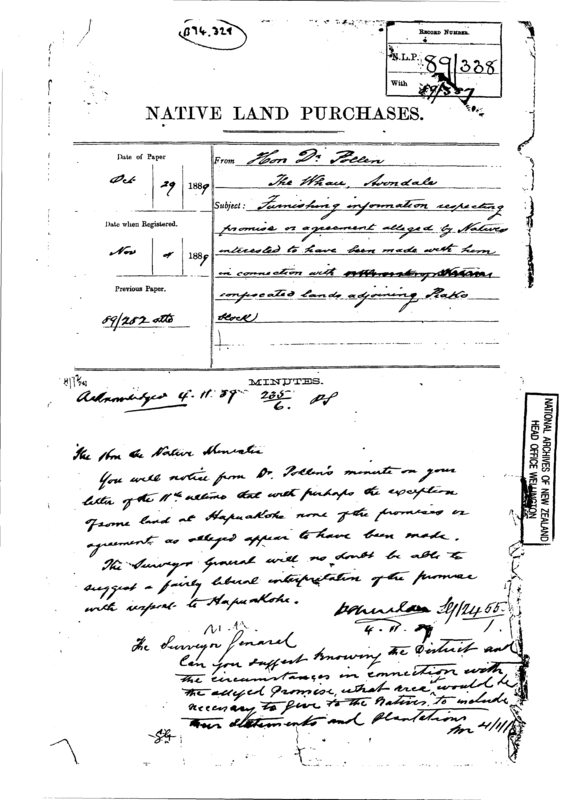 B74.329
RECORD NUMBER.
N.L.P. 89/338
With 89/337
NATIVE LAND PURCHASES.
Date of Paper
Oct 29 1889
Date when Registered.
Nov 4 1889
Previous Paper.
89/282 atts
From Hon Dr Pollen
The Whau, Avondale
Subject: Furnishing information respecting
promise or agreement alleged by Natives
interested to have been made with him
in connection with
confiscated lands adjoining Piako
block
MINUTES.
Acknowledged 4.11.89 235/6.
The Hon the Native Minister
You will notice from Dr. Pollen's minute on your
letter of the 11th ultimo that with perhaps the exception
of some land at Hapuakohe none of the promises or
agreements as alleged appear to have been made.
The Surveyor General will no doubt be able to
suggest a fairly liberal interpretation of the promise
with respect to Hapuakohe.
4.11.89
The Surveyor General
Can you suggest knowing the District and
the circumstances in connection with
the alleged Promise, what area would be
necessary to give to the Natives to include
their settlements and Plantations
4/11/
SG
NATIONAL ARCHIVES OF NEW ZEALAND
HEAD OFFICE WELLINGTON